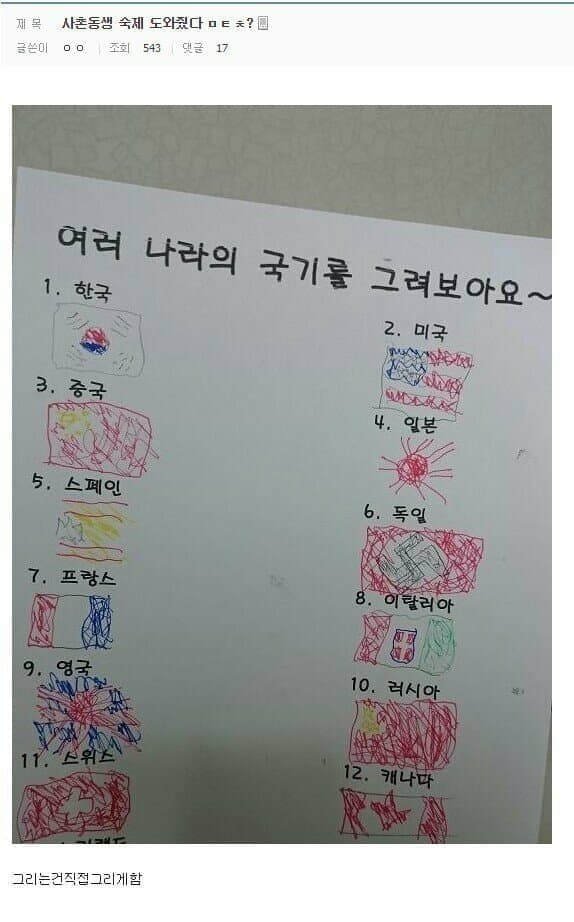 제 목 사촌동생 숙제 도와줬다 ㅁㅌㅊ?
글쓴이 ㅇㅇ | 조회 543 | 댓글 17
여러 나라의 국기를 그려보아요~
1. 한국
2. 미국
3. 중국
4. 일본
5. 스페인
6. 독일
7. 프랑스
8. 이탈리아
9. 영국
10. 러시아
11. 스위스
12. 캐나다
그리는건직접그리게함